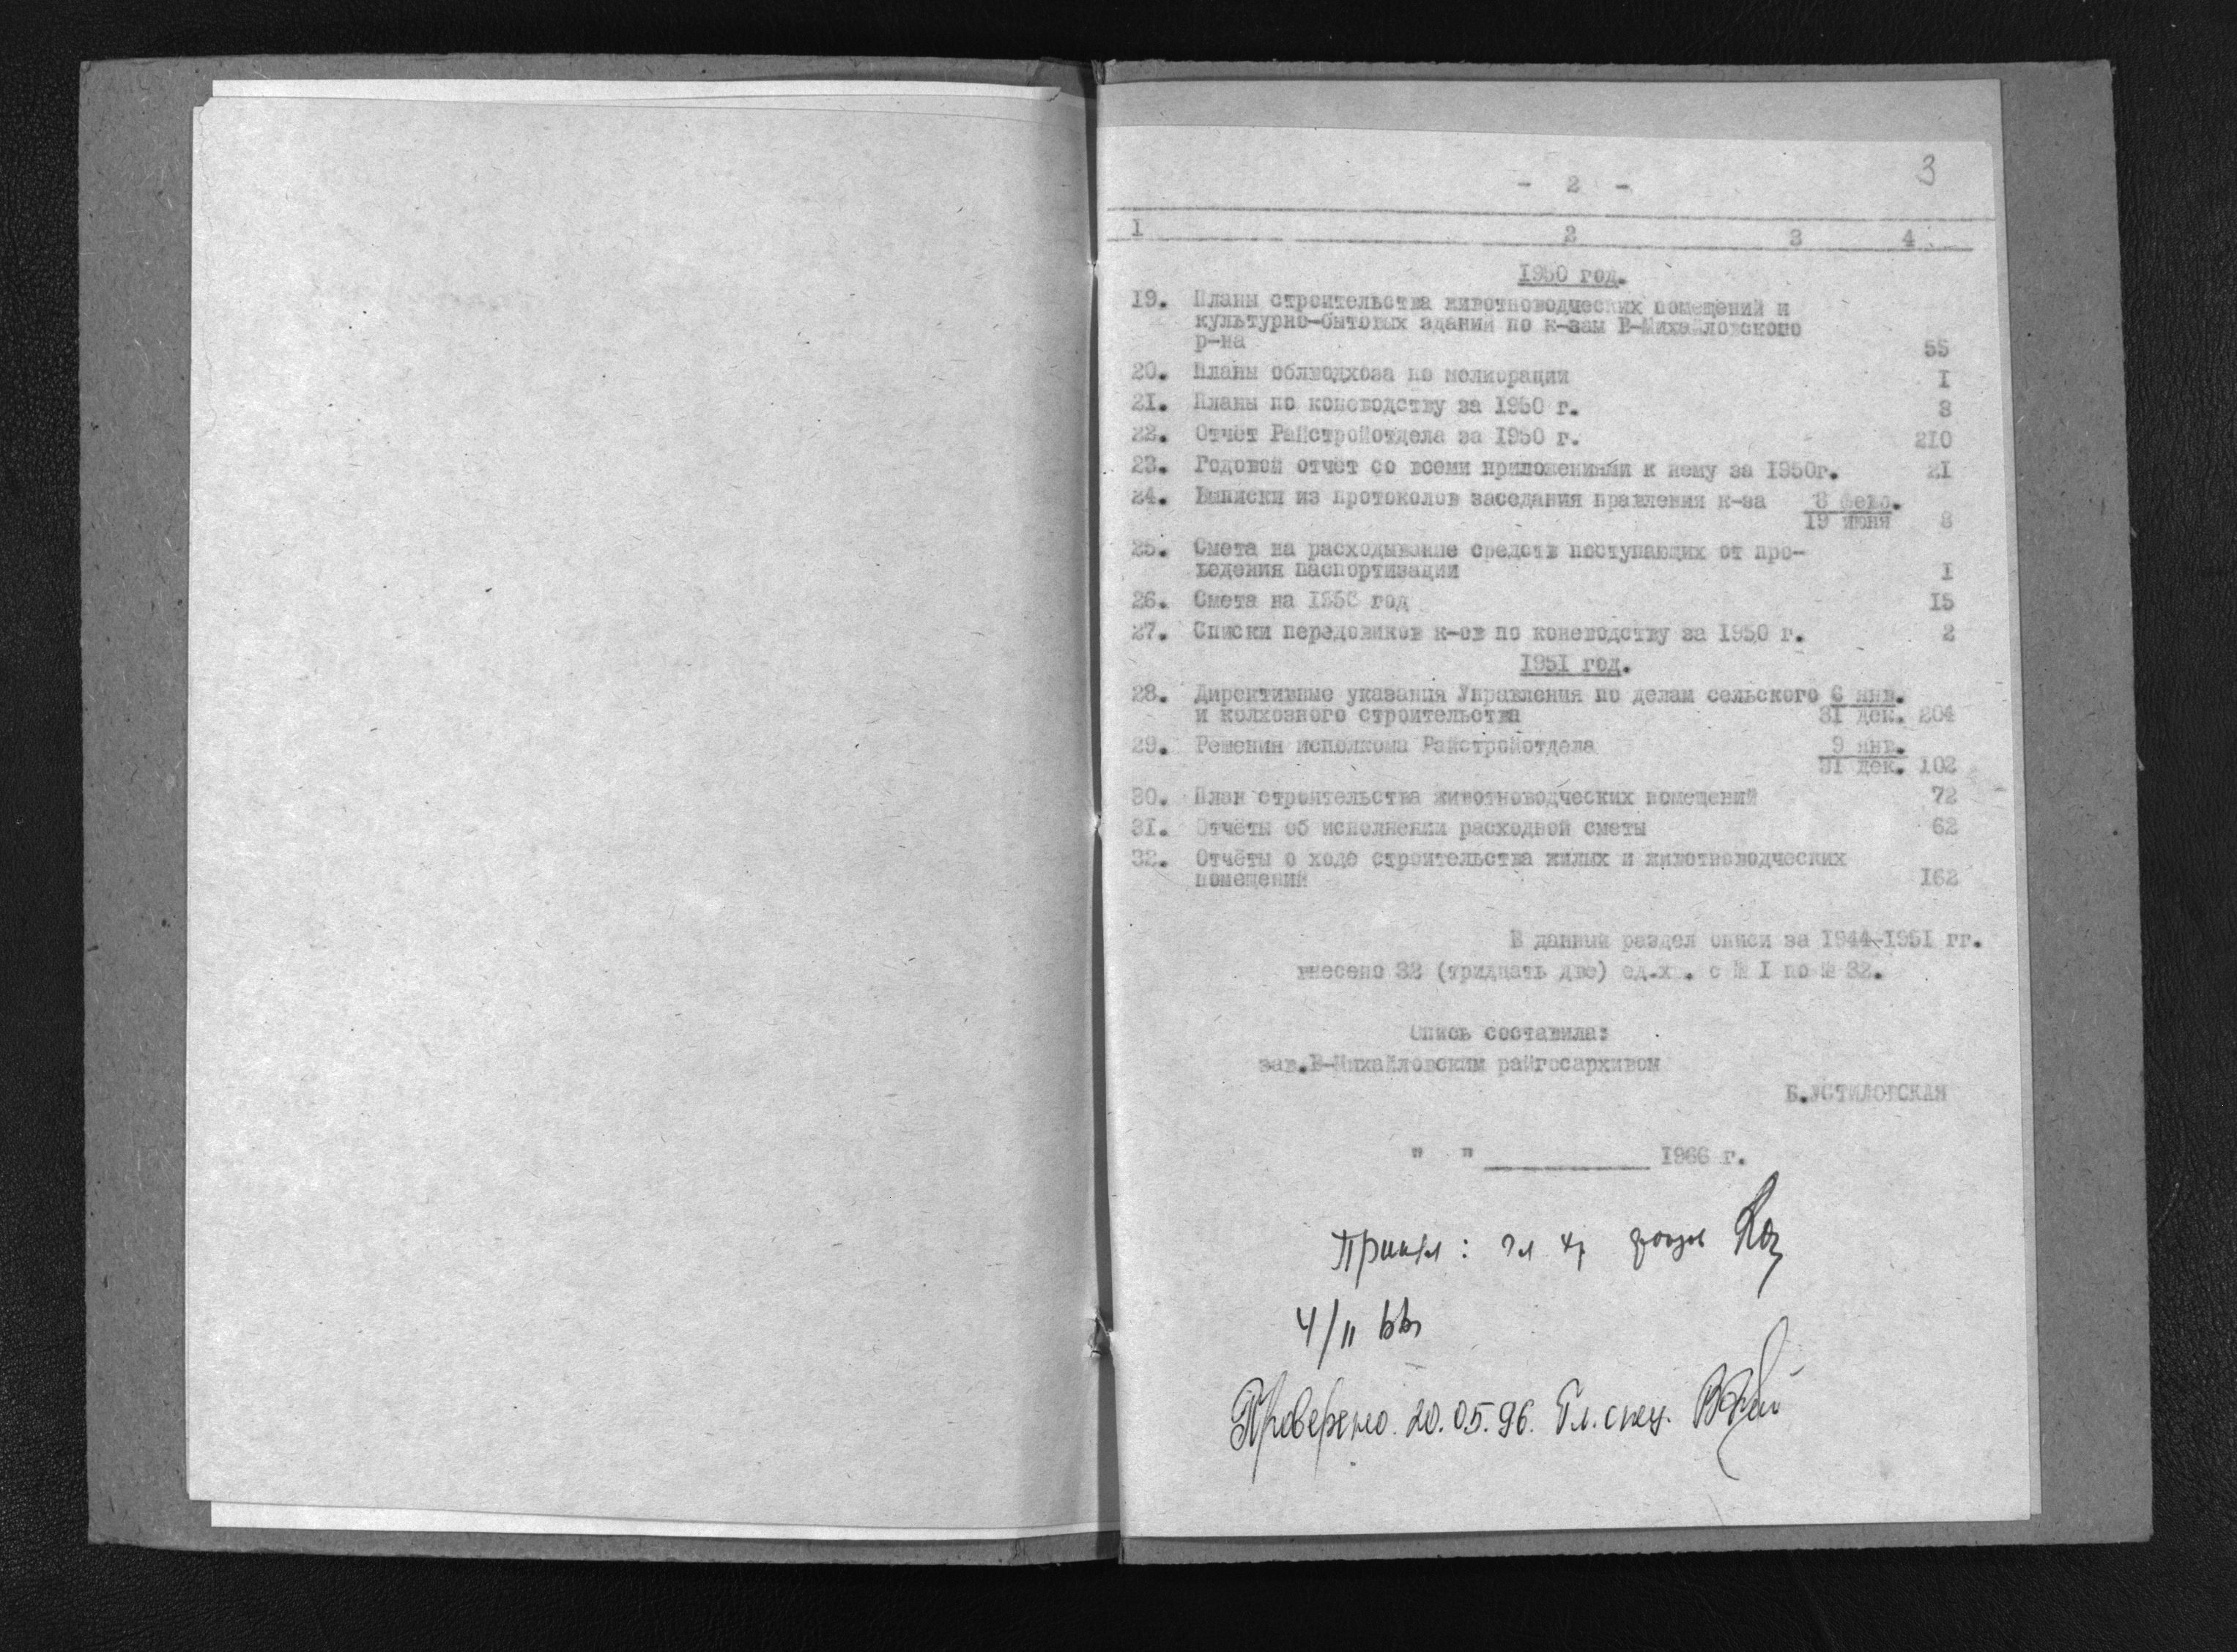 3
- 2 -
1 2 3 4
1950 год.
19. Планы строительства животноводческих помещений и
культурно-бытовых зданий по к-зам В-Михайловского
р-на 55
20. Планы облводхоза по мелиорации I
21. Планы по коневодству за 1950 г. 3
22. Отчёт Райстройотдела за 1950 г. 210
23. Годовой отчёт со всеми приложениями к нему за 1950г. 21
24. Выписки из протоколов заседания правления к-за 8 февр.
19 июня 8
25. Смета на расходывание средств поступающих от про-
ведения паспортизации I
26. Смета на 1950 год 15
27. Списки передовиков к-ов по коневодству за 1950 г. 2
1951 год.
28. Директивные указания Управления по делам сельского 6 янв.
и колхозного строительства 31 дек. 204
29. Решения исполкома Райстройотдела 9 янв.
31 дек. 102
30. План строительства животноводческих помещений 72
31. Отчёты об исполнении расходной сметы 62
32. Отчёты о ходе строительства жилых и животноводческих
помещений 162
В данный раздел описи за 1944-1951 гг.
внесено 32 (тридцать две) ед.х . с № I по № 32.
Опись составила:
зав.В-Михайловским райгосархивом
Б.УСТИЛОВСКАЯ
" " 1966 г.
4/II 66
Проверено. 20.05.96. Гл. спец.